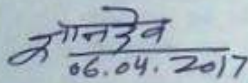 ज्ञानदेव
06.04.2017